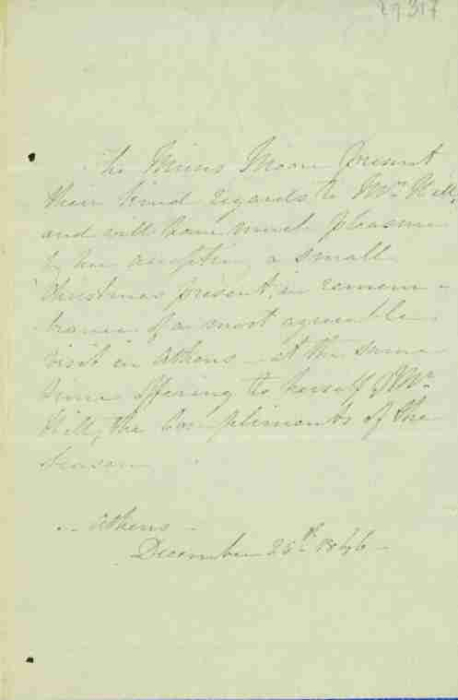 29317
The Misses Moore present
their kind regards to Mrs Hill,
and will have much pleasure
by her accepting a small
Christmas present, in remem-
brance of a most agreeable
visit in Athens - at the same
time offering to herself & Mr
Hill, the Compliments of the
Season
Athens -
December 25th 1846 -